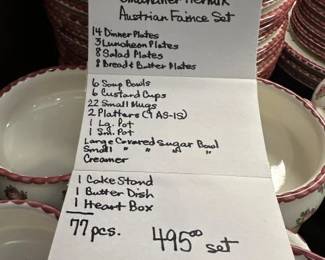 Austrian Faince Set
14 Dinner Plates
3 Luncheon Plates
8 Salad Plates
8 Bread & Butter Plates
6 Soup Bowls
6 Custard Cups
22 Small Mugs
2 Platters (1 AS-IS)
1 Lg. Pot
1 Sm. Pot
Large Covered Sugar Bowl
Small " " "
Creamer
1 Cake Stand
1 Butter Dish
1 Heart Box
77 pcs. 495.00 set